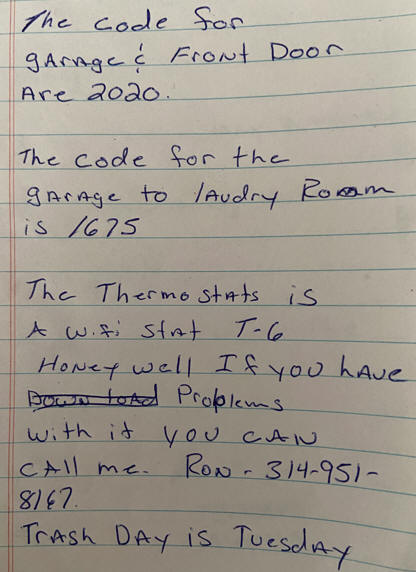 The code for
garage & Front Door
Are 2020.
The code for the
garage to laudry Room
is 1675
The Thermostats is
A wifi stat T-6
Honey well If you have
Problems
with it you can
call me. Ron - 314-951-
8167.
Trash Day is Tuesday